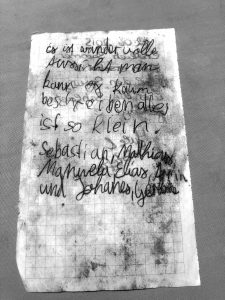 es ist wundervolle
Aussicht man
kann es kaum
beschreiben alles
ist so klein.
Sebastian, Mathias,
Manuela, Elias,
und Johanes,